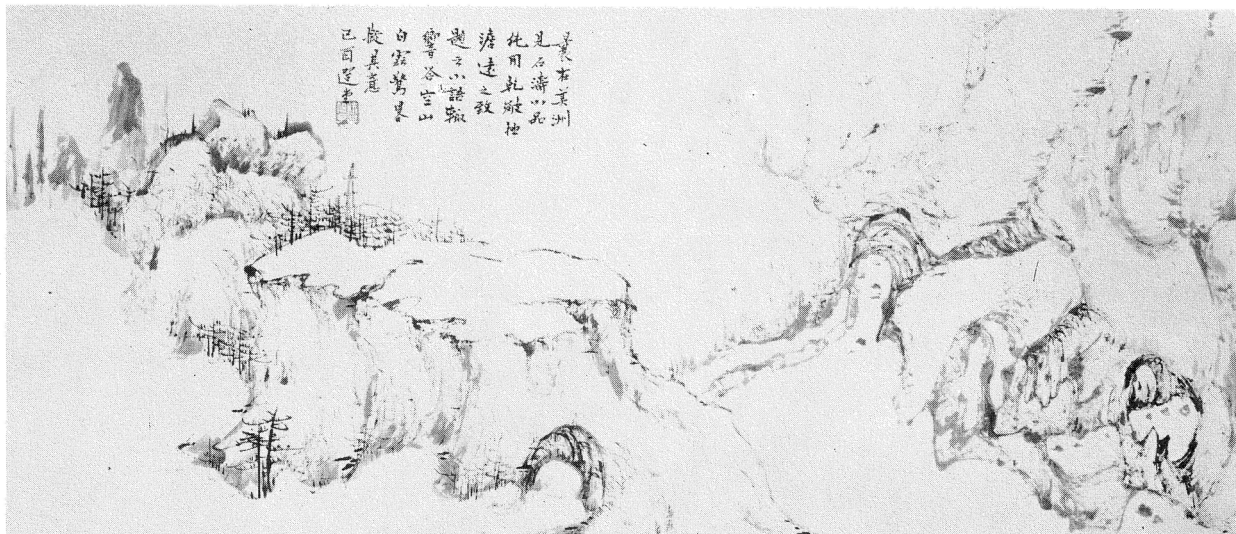 曩在美洲
見石濤小品
純用乾皴極
澹遠之致
題云小語輒
響答空山
白雲驚君
擬其意
己酉選堂